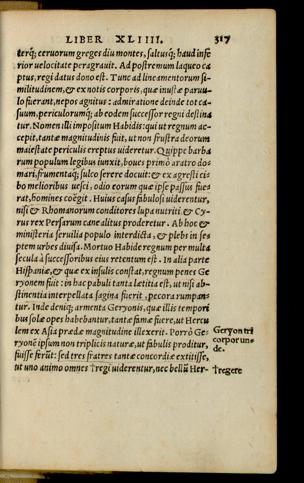 LIBER XLIIII. 317
terq́; ceruorum greges diu montes, saltusq́; haud infe
rior uelocitate peragrauit. Ad postremum laqueo ca
ptus, regi datus dono est. Tunc ad lineamentorum si-
militudinem, & ex notis corporis, quæ inustæ paruu-
lo fuerant, nepos agnitus: admiratione deinde tot ca-
suum, periculorumq́; ab eodem successor regni destina
tur. Nomen illi impositum Habidis: qui ut regnum ac-
cepit, tantæ magnitudinis fuit, ut non frustra deorum
maiestate periculis ereptus uideretur. Quippe barba
rum populum legibus iunxit, boues primò aratro do-
mari, frumentaq́; sulco serere docuit: & ex agresti ci
bo melioribus uesci, odio eorum quæ ipse passus fue
rat, homines coëgit. Huius casus fabulosi uiderentur,
nisi & Rhomanorum conditores lupa nutriti & Cy-
rus rex Persarum cane alitus proderetur. Ab hoc &
ministeria seruilia populo interdicta, & plebs in se
ptem urbes diuisa. Mortuo Habide regnum per multa
secula à successoribus eius retentum est. In alia parte
Hispaniæ, & quæ ex insulis constat, regnum penes Ge
ryonem fuit: in hac pabuli tanta lætitia est, ut nisi ab-
stinentia interpellata sagina fuerit, pecora rumpan-
tur. Inde deniq; armenta Geryonis, quæ illis tempori
bus solæ opes habebantur, tantæ famæ fuere, ut Hercu
lem ex Asia prædæ magnitudine illexerit. Porrò Ge-
ryonẽ ipsum non triplicis naturæ, ut fabulis proditur,
fuisse ferũt: sed tres fratres tantæ concordiæ extitisse,
ut uno animo omnes †regi uiderentur, nec bellũ Her-
Geryon tri
corpor un-
de.
†regere